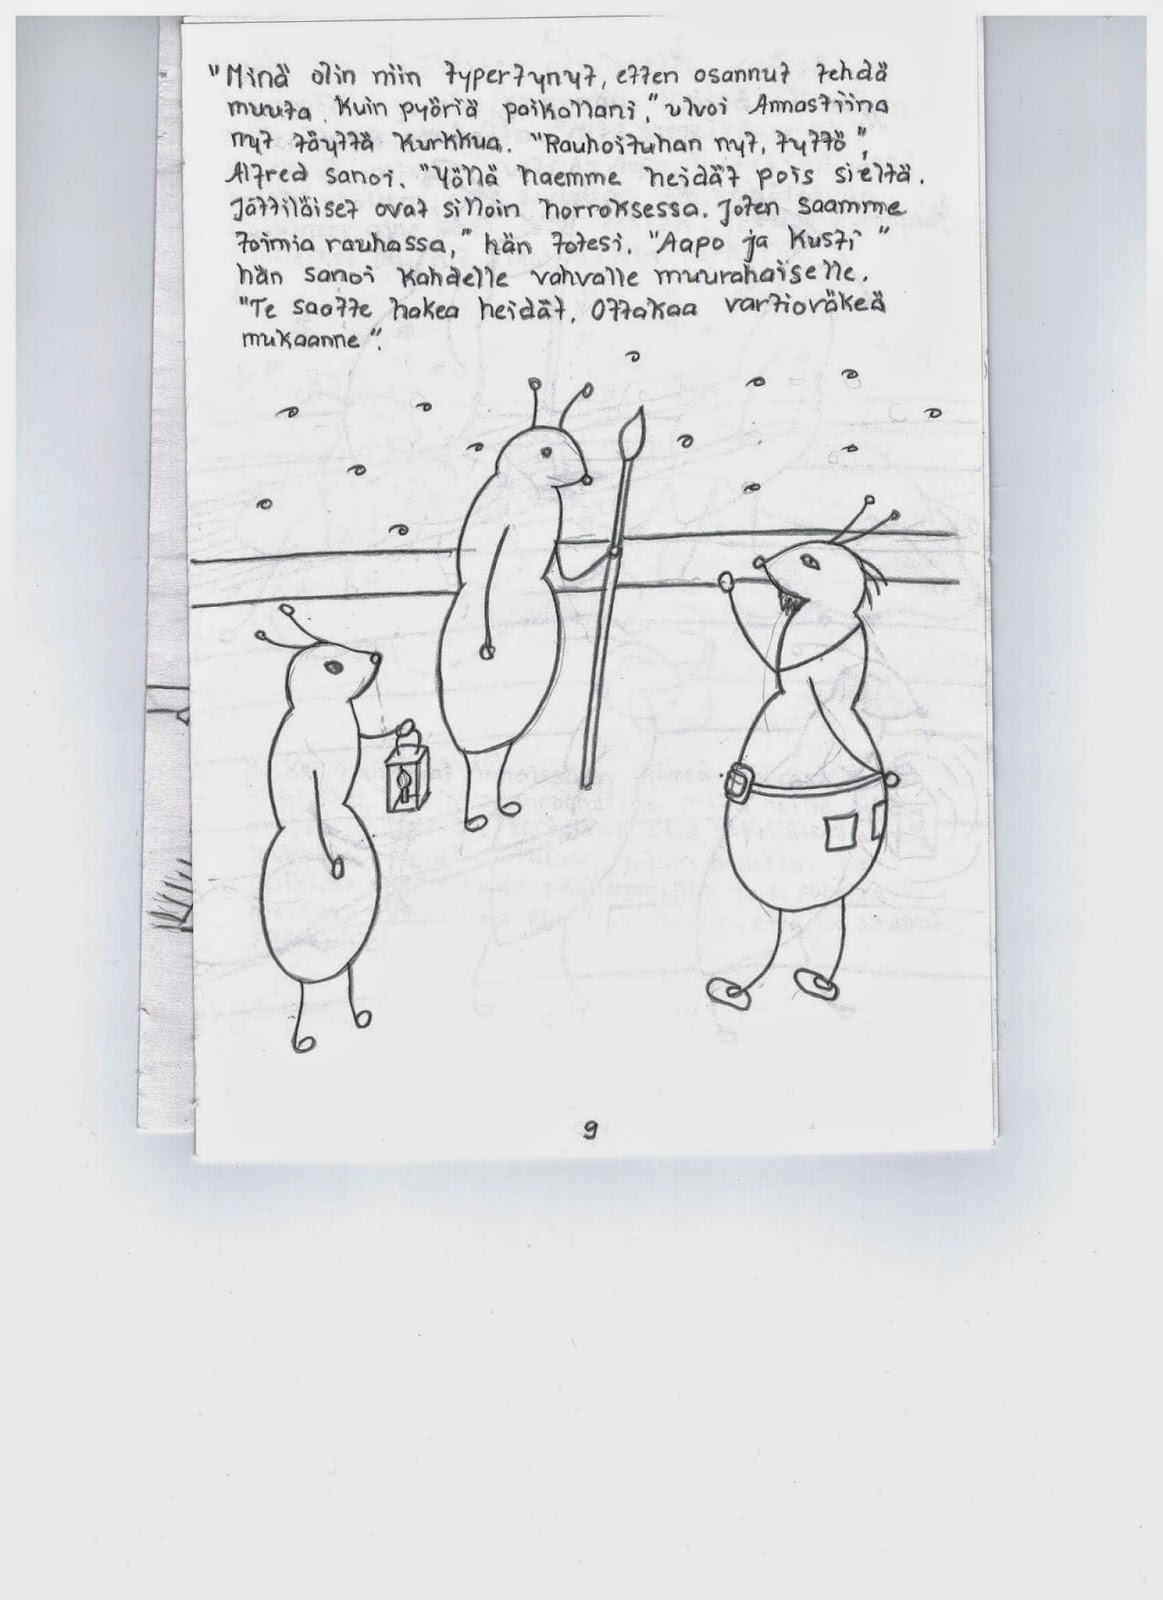 "Minä olin niin typertynyt, etten osannut tehdä
muuta kuin pyöriä paikallani," ulvoi Annastiina
nyt täyttä kurkkua. "Rauhoituhan nyt, tyttö",
Alfred sanoi. "Yöllä haemme heidät pois sieltä.
Jättiläiset ovat silloin horroksessa. Joten saamme
toimia rauhassa," hän totesi. "Aapo ja Kusti"
hän sanoi kahdelle vahvalle muurahaiselle.
"Te saatte hakea heidät. Ottakaa vartioväkeä
mukaanne".
9